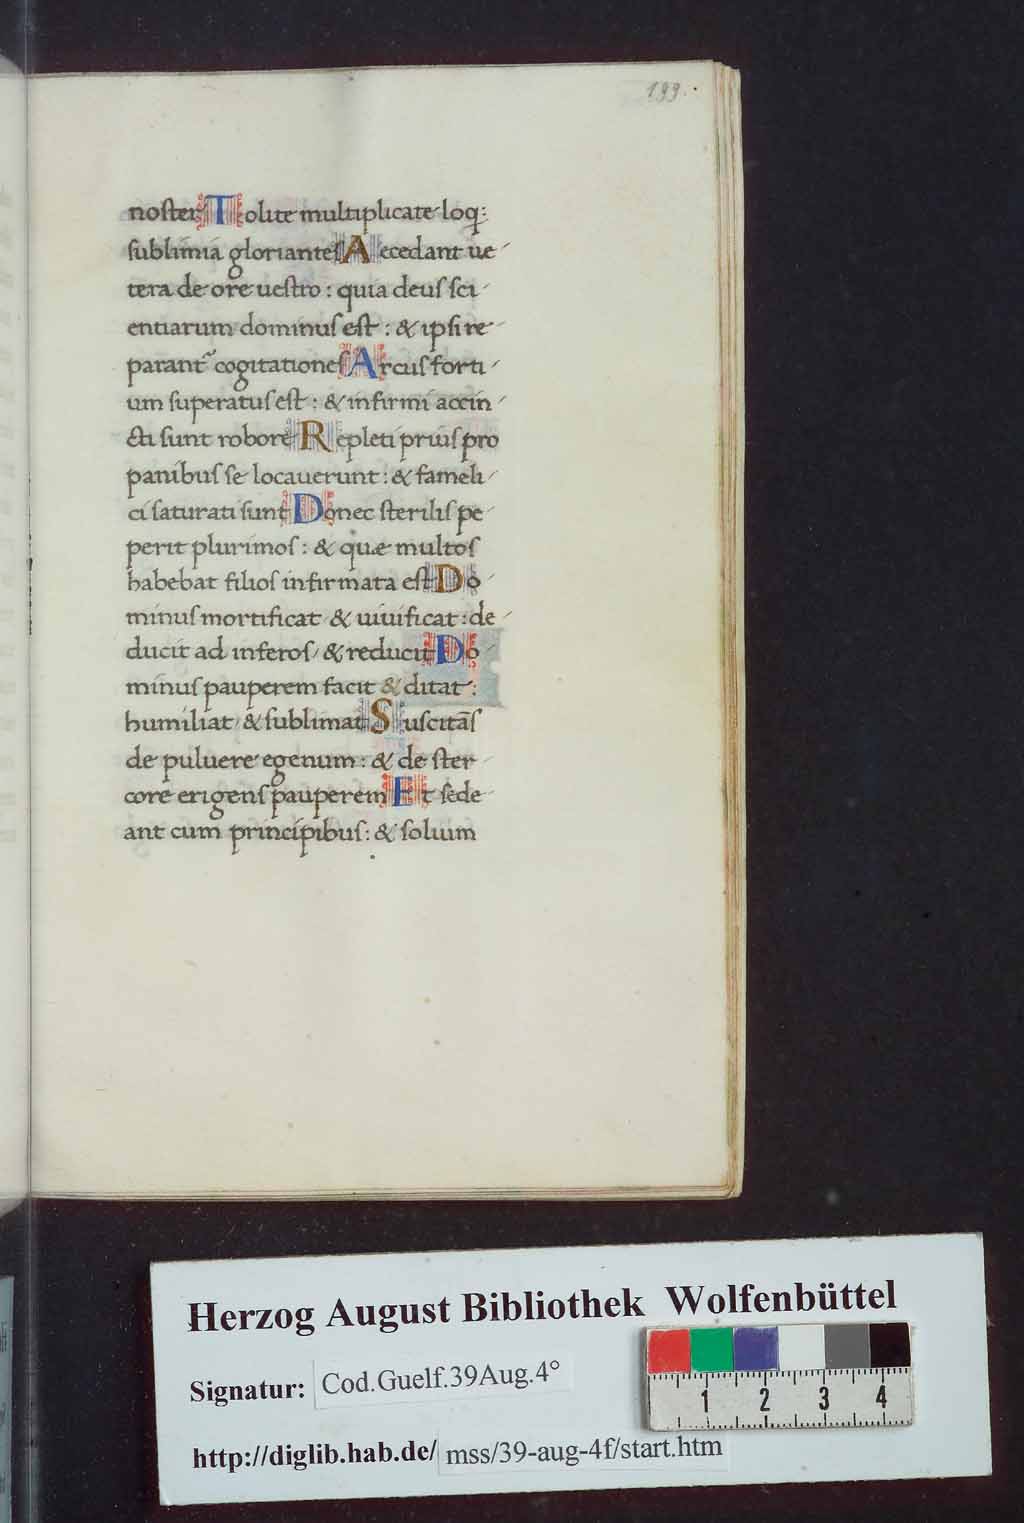 199.
noster Tolite multiplicate loq:
sublimia gloriantes Aecedant ue
tera de ore uestro : quia deus sci
entiarum dominus est : & ipsi re
parant cogitationes Arcus forti
um superatus est : & infirmi accin
cti sunt robore Repleti prius pro
panibus se locauerunt : & fameli
ci saturati sunt Donec sterilis pe
perit plurimos : & quæ multos
habebat filios infirmata est Do
minus mortificat & uiuificat : de
ducit ad inferos & reducit Do
minus pauperem facit & ditat :
humiliat & sublimat Suscitās
de puluere egenum : & de ster
core erigens pauperem Et sede
ant cum principibus : & solium
Herzog August Bibliothek Wolfenbüttel
Signatur: Cod.Guelf.39Aug.4°
http://diglib.hab.de/ mss/39-aug-4f/start.htm
1 2 3 4